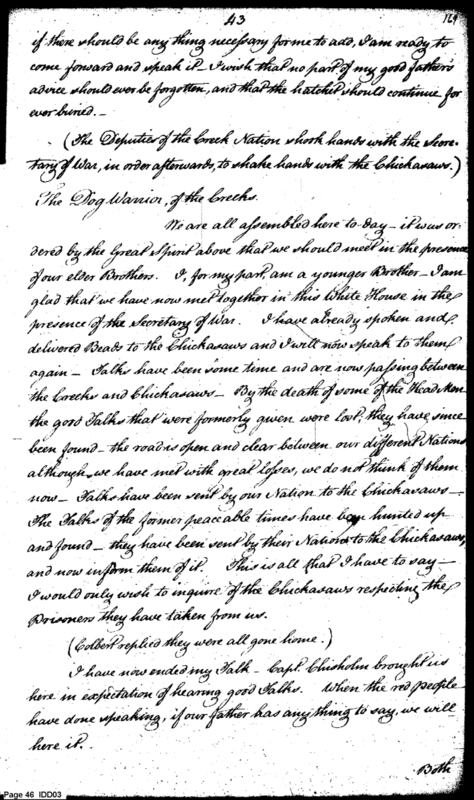 43
169
if there should be any thing necessary for me to add, I am ready to
come forward and speak it. I wish that no part of my good father's
advice should ever be forgotten, and that the hatchet should continue for
ever buried.—
(The Deputies of the Creek Nation shook hands with the Secre-
tary of War, in order afterwards, to shake hands with the Chickasaws.)
The Dog Warrior, of the Creeks.
We are all assembled here to-day — it was or-
dered by the Great Spirit above that we should meet in the presence
of our elder Brothers. I, for my part, am a younger Brother — I am
glad that we have now met together in this White House in the
presence of the Secretary of War. I have already spoken and
delivered Beads to the Chickasaws and I will now speak to them
again — Talks have been some time and are now passing between
the Creeks and Chickasaws — By the death of some of the Head Men
the good Talks that were formerly given were lost, they have since
been found — the road is open and clear between our different Nations
although we have met with great losses, we do not think of them
now — Talks have been sent by our Nation to the Chickasaws —
The Talks of the former peaceable times have been hunted up
and found — they have been sent by their Nation to the Chickasaws,
and now inform them of it. This is all that I have to say —
I would only wish to inquire of the Chickasaws respecting the
Prisoners they have taken from us.
(Colbert replied they were all gone home.)
I have now ended my Talk — Capt. Chisholm brought us
here in expectation of hearing good Talks. When the red people
have done speaking, if our father has any thing to say, we will
here it.
Both
Page 46 IDD03